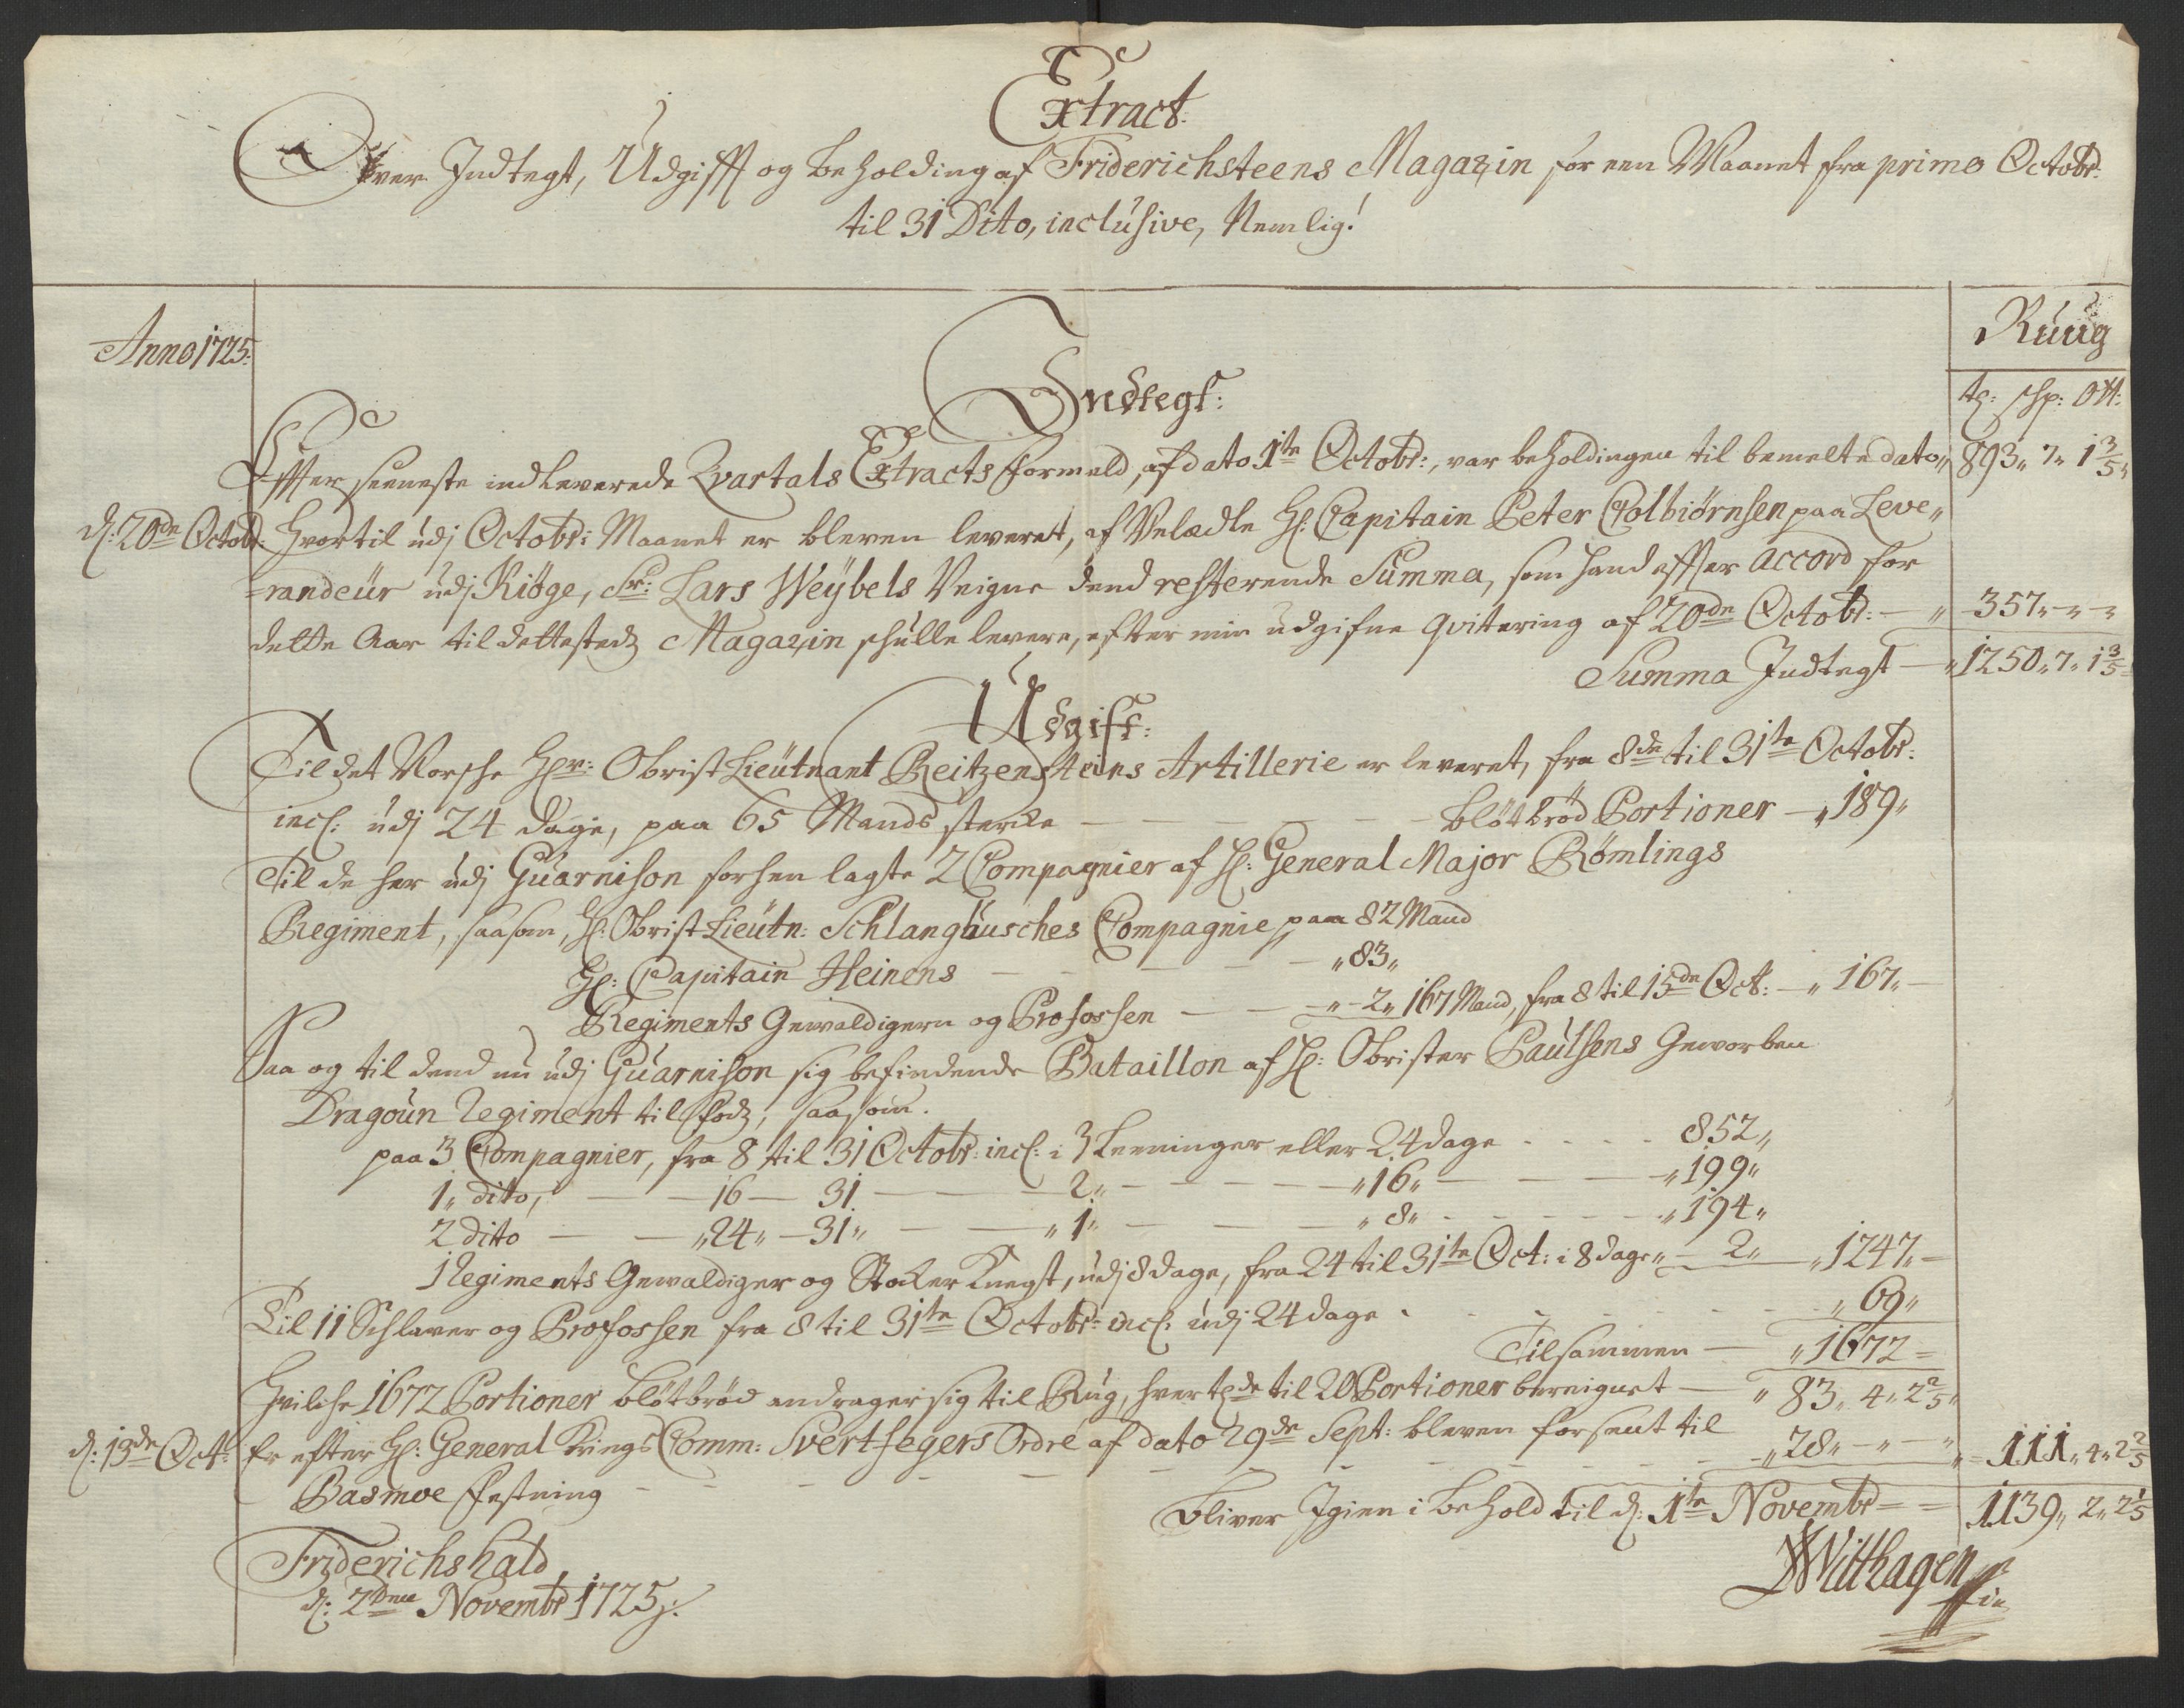 Extract
Over Indtegt, Udgifft og beholding af Friderichsteens Magazin for een Maanet fra primo Octobr:
til 31 Dito, inclusive, Nemlig!
Anno 1725:
Ruug
Indtegt:
tr: schp: Ott:
Effter seeneste indleverede Qvartals Extracts formeld, af dato 1te Octobr:, var beholdingen til bemelte dato „ 893„ 7„ 1 3/5„
d: 20de Octobr: Hvortil udj Octobr: Maanet er bleven leveret, af Velædle Hr: Capitain Peter Colbiørnsen paa Leve„
=randeur udj Kiöge, Sr: Lars Weÿbels Veigne dend resterende Summa, som hand effter accord for
dette Aar til dettesteds Magazin schulle levere, efter min udgifne qvitering af 20de Octobr: — „ 357„ -„ -„
Summa Indtegt — „ 1250„ 7„ 1 3/5 =
Udgift:
Til det Norsche Hr: Obrist Lieutnant Reitzensteins Artillerie er leveret, fra 8de til 31te Octobr:
incl: udj 24 dage, paa 65 Mands sterke — — — — — bløtbrød Portioner — „ 189„
Til de her udj Guarnison forhen lagte 2 Compagnier af Hr: General Major Römlings
Regiment, saasom, Hr: Obrist Lieutn: Schlanghusches Compagnie paa 82 Mand
Hr: Capitain Heinens — — — — — „ 83„
Regiments Gewaldigern og Profossen — — „ - 2„ 167 Mand, fra 8 til 15de Oct: — „ 167„ —
Saa og til dend nu udj Guarnison sig befindende Bataillon af Hr: Obrister Paulsens Geworben
Dragoun Regiment til fods, saasom.
paa 3 Compagnier, fra 8 til 31 Octobr: incl: i 3 Leeninger eller 24 dage - - - - 852„
1„ dito, — — 16 — 31 — — — 2„ — — — — „ 16„ — — — „ 199„
2 dito — — „ 24„ — 31„ — — „ 1„ — — — „ 8„ - - - - - „ 194„
1 Regiments Gewaldiger og Stocker Knegt, udj 8 dage, fra 24 til 31te Oct: i 8 dage „ — 2„ „ 1247„ —
Til 11 Schlaver og Profossen fra 8 til 31te Octobr: incl: udj 24 dage - - - - - - - „ 69„
Tilsammen — „ 1672 =
Hvilche 1672 Portioner bløtbrød andrager sig til Rug, hver tde til 20 Portioner bereignet — „ 83„ 4„ 2 2/5„
d: 13de Oct: Er efter Hr: General Krigs Comm: Svertfegers Ordre af dato 29de Sept: bleven forsent til
Basmoe Festning - - - - - - - - - - „ 28„ -„ -„ „ = 111„ 4„ 2 2/5
Bliver Igien i behold til d: 1te Novembr = = 1139„ 2„ 2 1/5
Friderichshald
d: 2dene Novembr 1725:
Withagen